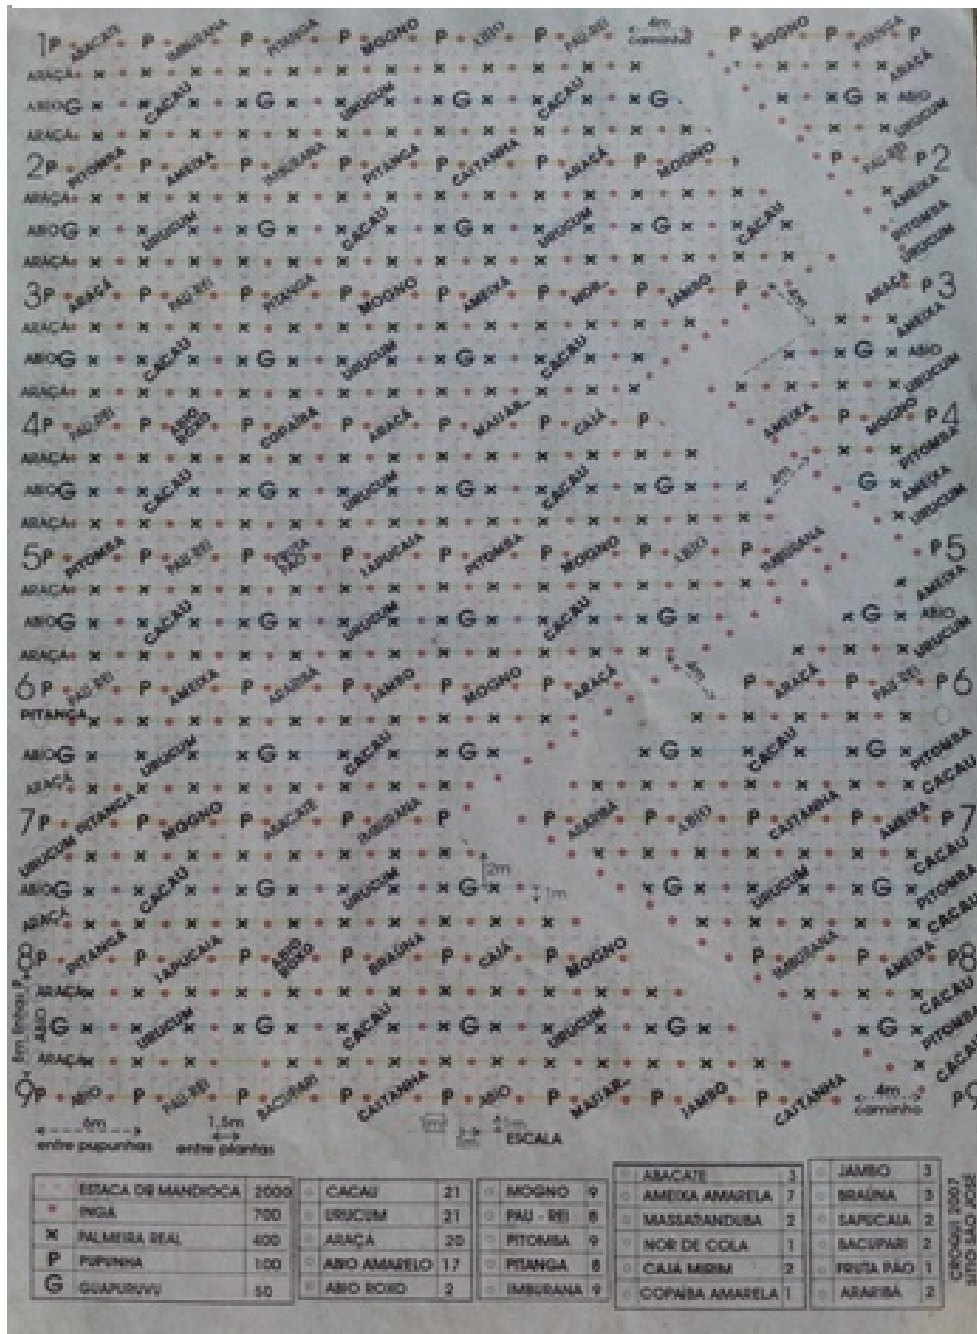 1 P ABACATE P IMBURANA P PITANGA P MOGNO P ABIO P PAU-REI 4m caminho P MOGNO P PITANGA P
ARAÇÁ ARAÇÁ
ABIO G CACAU G URUCUM G CACAU G G ABIO
ARAÇÁ URUCUM
2 P PITOMBA P AMEIXA P IMBURANA P PITANGA P CASTANHA P ARAÇÁ P MOGNO P PAU-REI P 2
ARAÇÁ AMEIXA
ABIO G URUCUM G CACAU G URUCUM G CACAU PITOMBA
ARAÇÁ URUCUM
3 P ARAÇÁ P PAU-REI P PITANGA P MOGNO P AMEIXA P NOR.. P JAMBO P 4m ARAÇÁ P 3
ARAÇÁ AMEIXA
ABIO G CACAU G URUCUM G CACAU G ABIO
ARAÇÁ URUCUM
4 P PAU-REI P ABIO ROXO P COPAÍBA P ARAÇÁ P MASSAR.. P CAJÁ P AMEIXA P MOGNO P 4
ARAÇÁ PITOMBA
ABIO G CACAU G URUCUM G CACAU G 4m G AMEIXA
ARAÇÁ URUCUM
5 P PITOMBA P PAU-REI P FRUTA PÃO P SAPUCAIA P PITOMBA P MOGNO P ABIO P IMBURANA P 5
ARAÇÁ AMEIXA
ABIO G CACAU G URUCUM G CACAU G G ABIO
ARAÇÁ URUCUM
6 P PAU-REI P AMEIXA P ARARIBÁ P JAMBO P MOGNO P ARAÇÁ 4m P ARAÇÁ P PAU-REI P 6
PITANGA
ABIO G URUCUM G CACAU G G CACAU G PITOMBA
ARAÇÁ CACAU
7 P PITANGA P MOGNO P ABACATE P IMBURANA P P ARARIBÁ P ABIO P CASTANHA P AMEIXA P 7
URUCUM CACAU
ABIO G CACAU G URUCUM G 2m 1m G URUCUM G PITOMBA
ARAÇÁ CACAU
8 P PITANGA P SAPUCAIA P ABIO ROXO P BRAÚNA P CAJÁ P MOGNO P IMBURANA P AMEIXA P 8
ARAÇÁ CACAU
ABIO G URUCUM G CACAU G URUCUM G G PITOMBA
ARAÇÁ CACAU
8m linhas P
9 P ABIO P PAU-REI P BACUPARI P CASTANHA P ABIO P MASSAR.. P JAMBO P CASTANHA 4m caminho P
6m entre pupunhas
1,5m entre plantas
ESCALA
ESTACA DE MANDIOCA 2000
INGÁ 700
PALMEIRA REAL 400
P PUPUNHA 100
G GUAPURUVU 50
CACAU 21
URUCUM 21
ARAÇÁ 20
ABIO AMARELO 17
ABIO ROXO 2
MOGNO 9
PAU - REI 8
PITOMBA 9
PITANGA 8
IMBURANA 9
ABACATE 3
AMEIXA AMARELA 7
MASSARANDUBA 2
NOR DE COLA 1
CAJÁ MIRIM 2
COPAÍBA AMARELA 1
JAMBO 3
BRAÚNA 3
SAPUCAIA 2
BACUPARI 2
FRUTA PÃO 1
ARARIBÁ 2
2007
SÍTIO SÃO JOSÉ